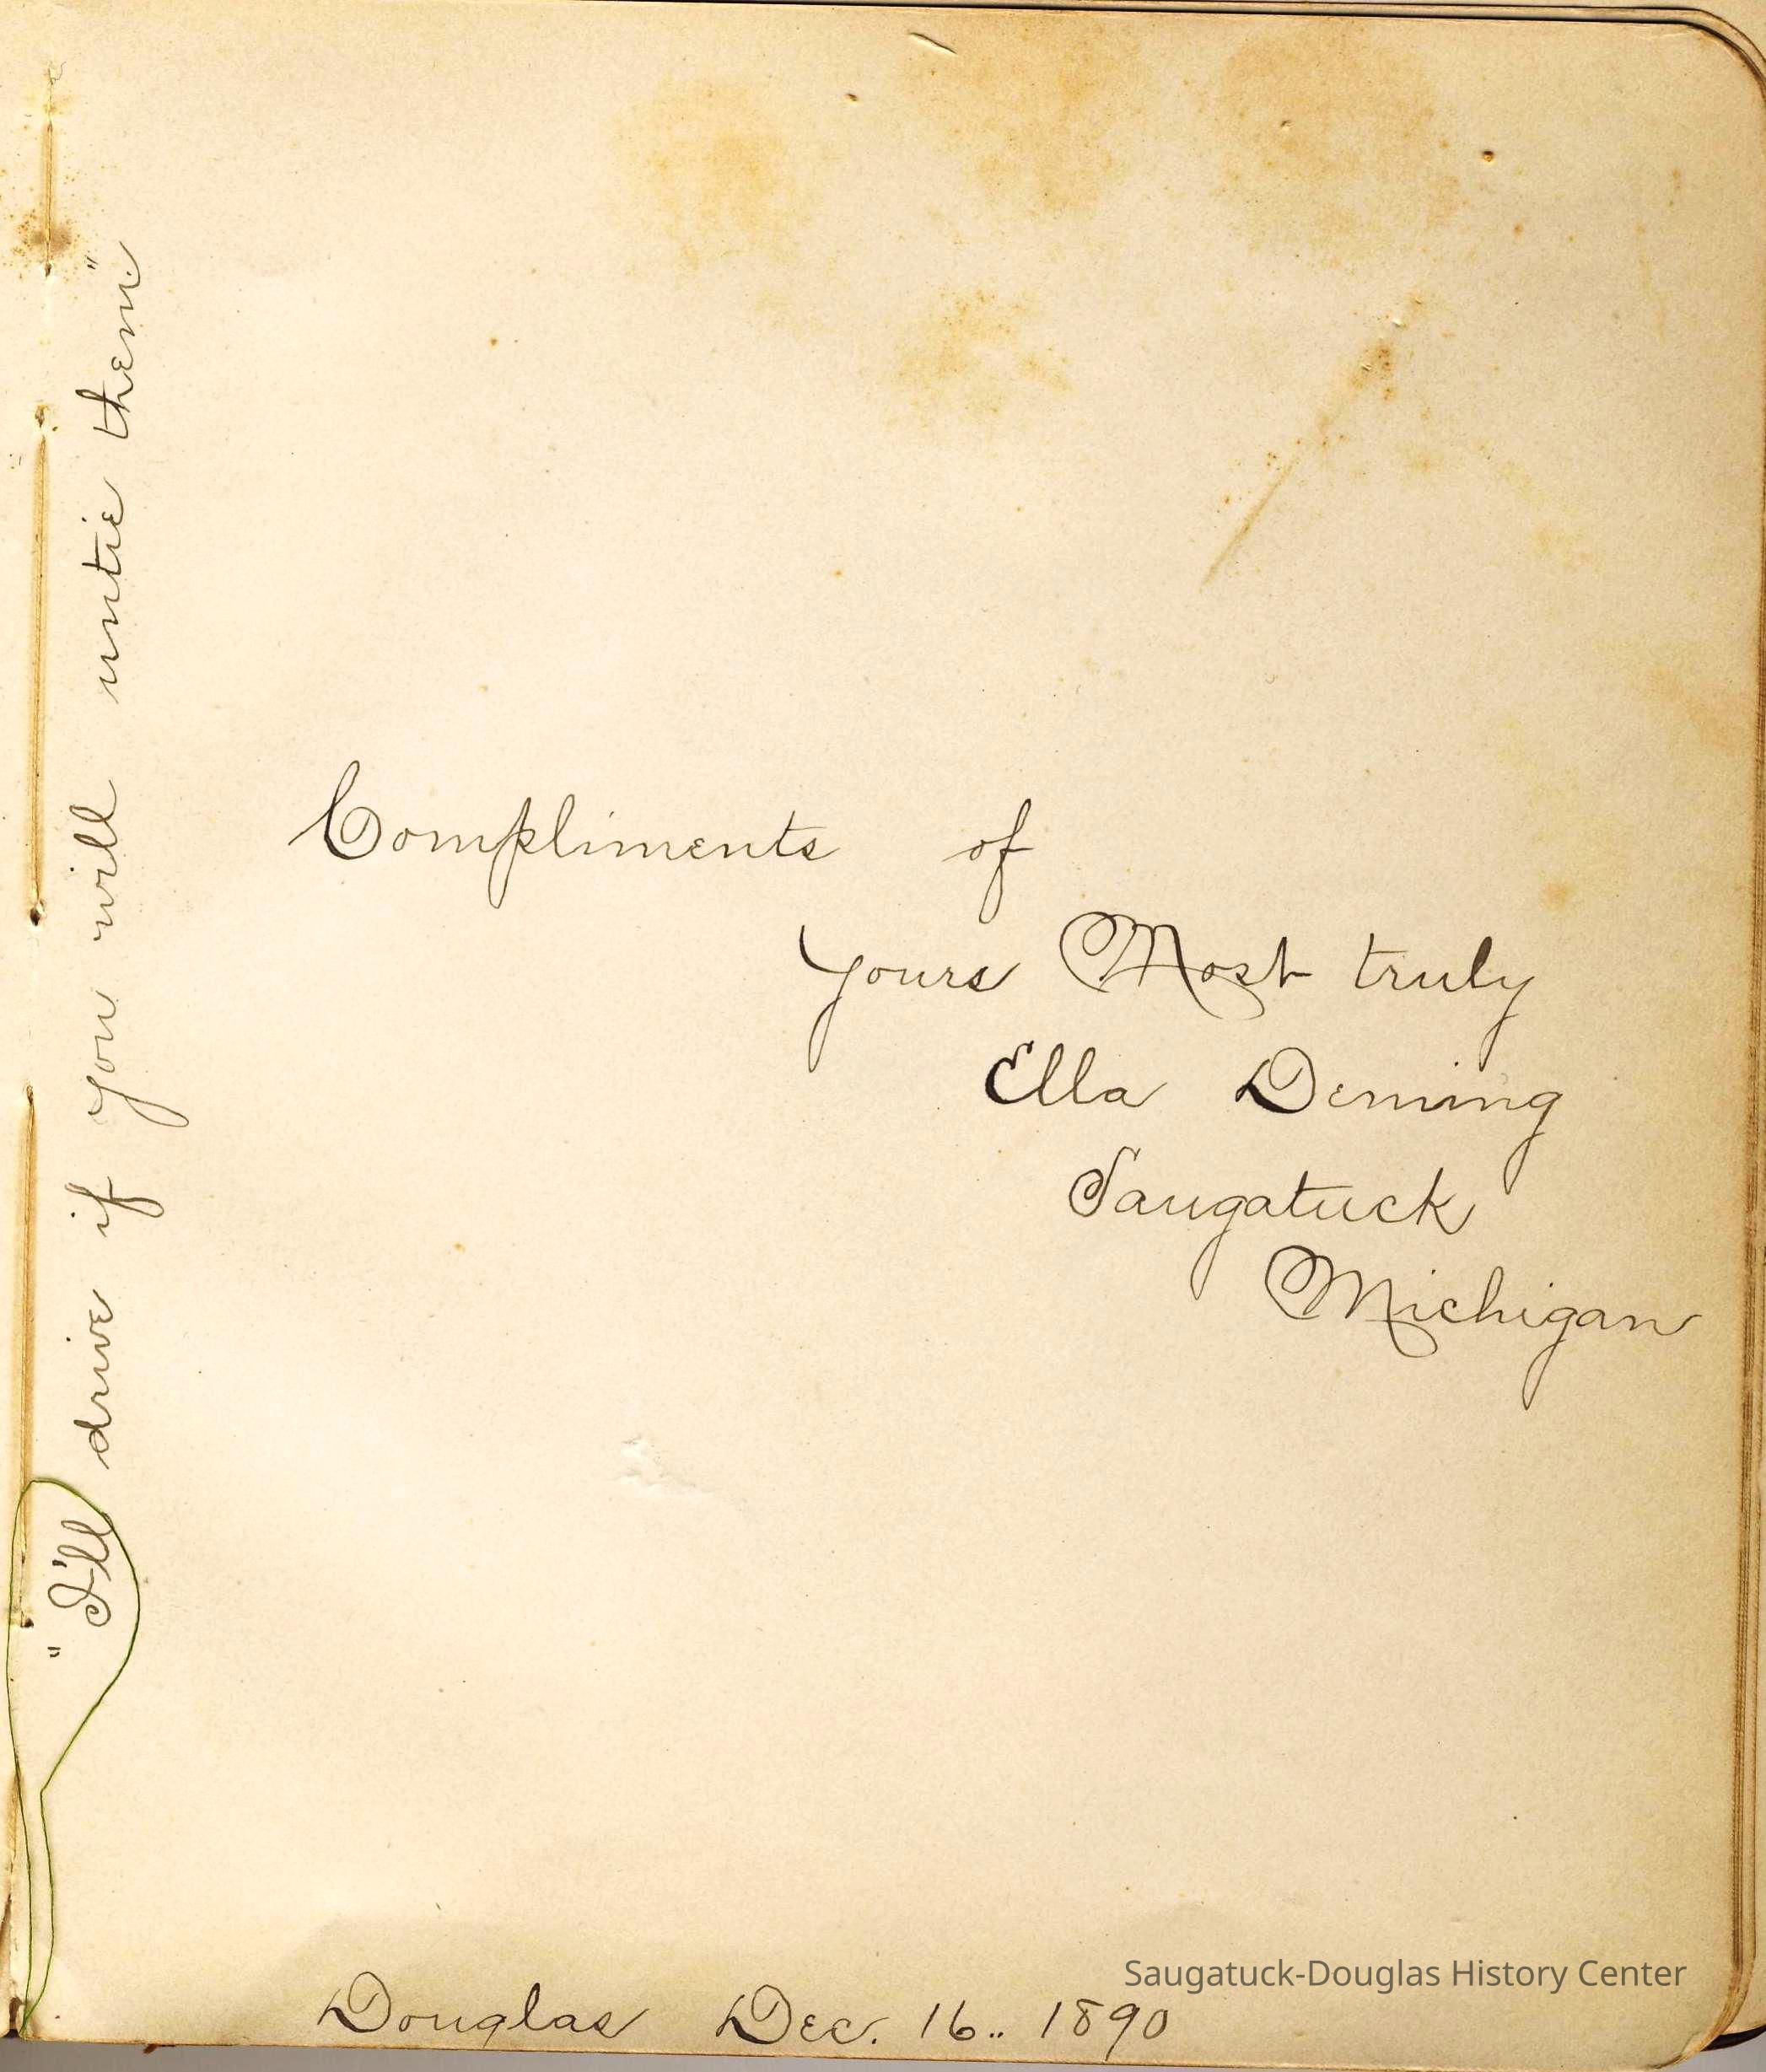 "I'll drive if you will untie them"
Compliments of
Yours Most truly
Ella Deming
Saugatuck
Michigan
Saugatuck-Douglas History Center
Douglas Dec. 16.. 1890